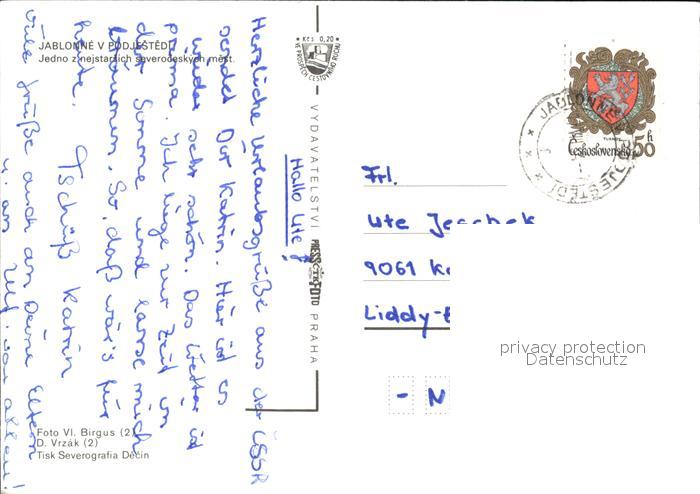 JABLONNÉ V PODJEŠTĚDÍ
Jedno z nejstarších severočeských měst.
Hallo Ute!
Herzliche Urlaubsgrüße aus der ČSSR
sendet Dir Katrin. Hier ist es
wieder sehr schön. Das Wetter ist
prima. Ich liege zur Zeit in
der Sonne und lasse mich
bräunen. So, daß wär's für
heute. Tschüß Katrin
Viele Grüße auch an Deine Eltern
u. an Ulf. von allen!
Foto Vl. Birgus (2)
D. Vrzák (2)
Tisk Severografia Děčín
Kčs 0,20
VE PROSPĚCH CESTOVNÍHO RUCHU
VYDAVATELSTVÍ PRESSFOTO PRAHA
JABLONNÉ V PODJEŠTĚDÍ
Československo 50 h
Frl.
Ute Jeschek
9061 K
Liddy-
- N
privacy protection
Datenschutz